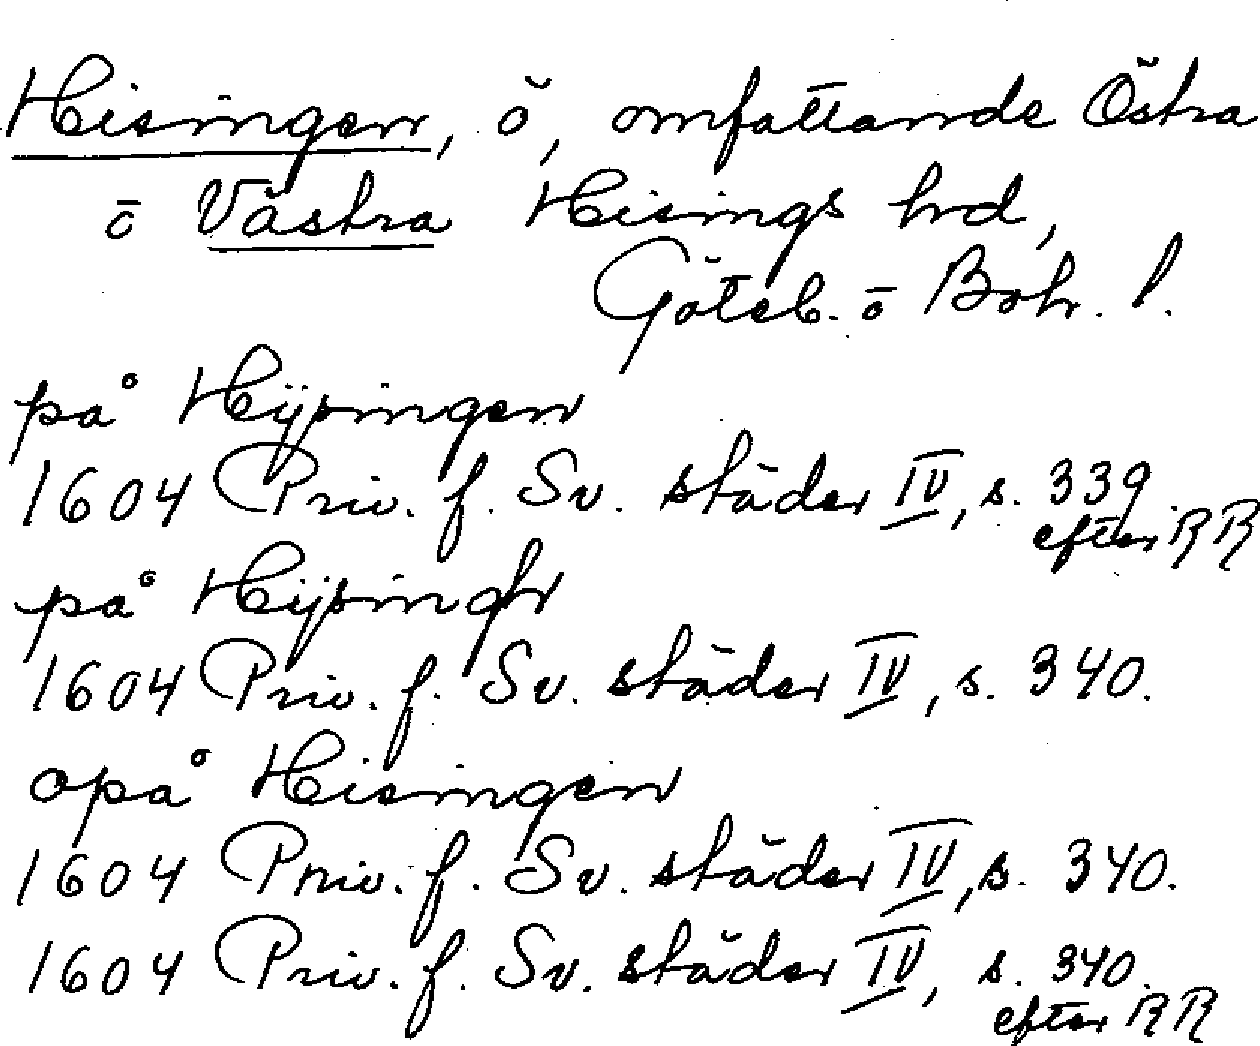 Hisingen, ö, omfattande Östra
o Västra Hisings hrd,
Göteb. o Boh. l.
på Hijsingen
1604 Priv. f. Sv. städer IV, s. 339
efter RR
på Hijsingh
1604 Priv. f. Sv. städer IV, s. 340.
opå Hisingen
1604 Priv. f. Sv. städer IV, s. 340.
1604 Priv. f. Sv. städer IV, s. 340.
efter RR